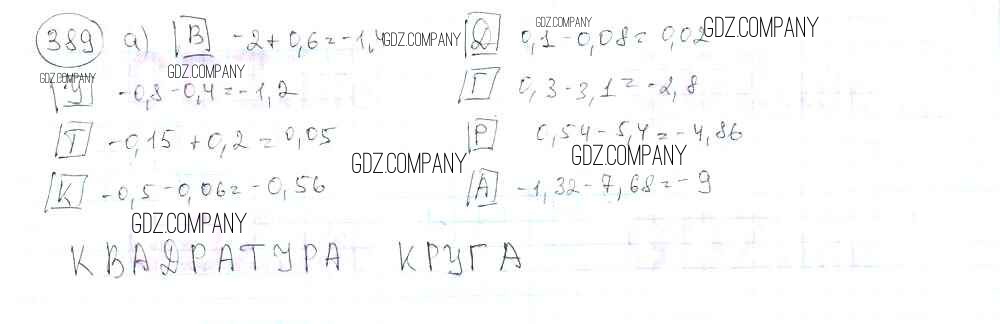 389 а) В -2 + 0,6 = -1,4 GDZ.COMPANY Д 0,1 - 0,08 = 0,02 GDZ.COMPANY GDZ.COMPANY
GDZ.COMPANY GDZ.COMPANY
У -0,8 - 0,4 = -1,2 Г 0,3 - 3,1 = -2,8
Т -0,15 + 0,2 = 0,05 Р 0,54 - 5,4 = -4,86
GDZ.COMPANY GDZ.COMPANY
К -0,5 - 0,06 = -0,56 А -1,32 - 7,68 = -9
GDZ.COMPANY
КВАДРАТУРА КРУГА